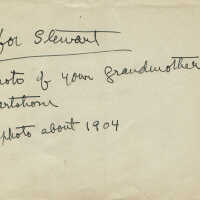 for Stewart
photo of your grandmother
photo about 1904